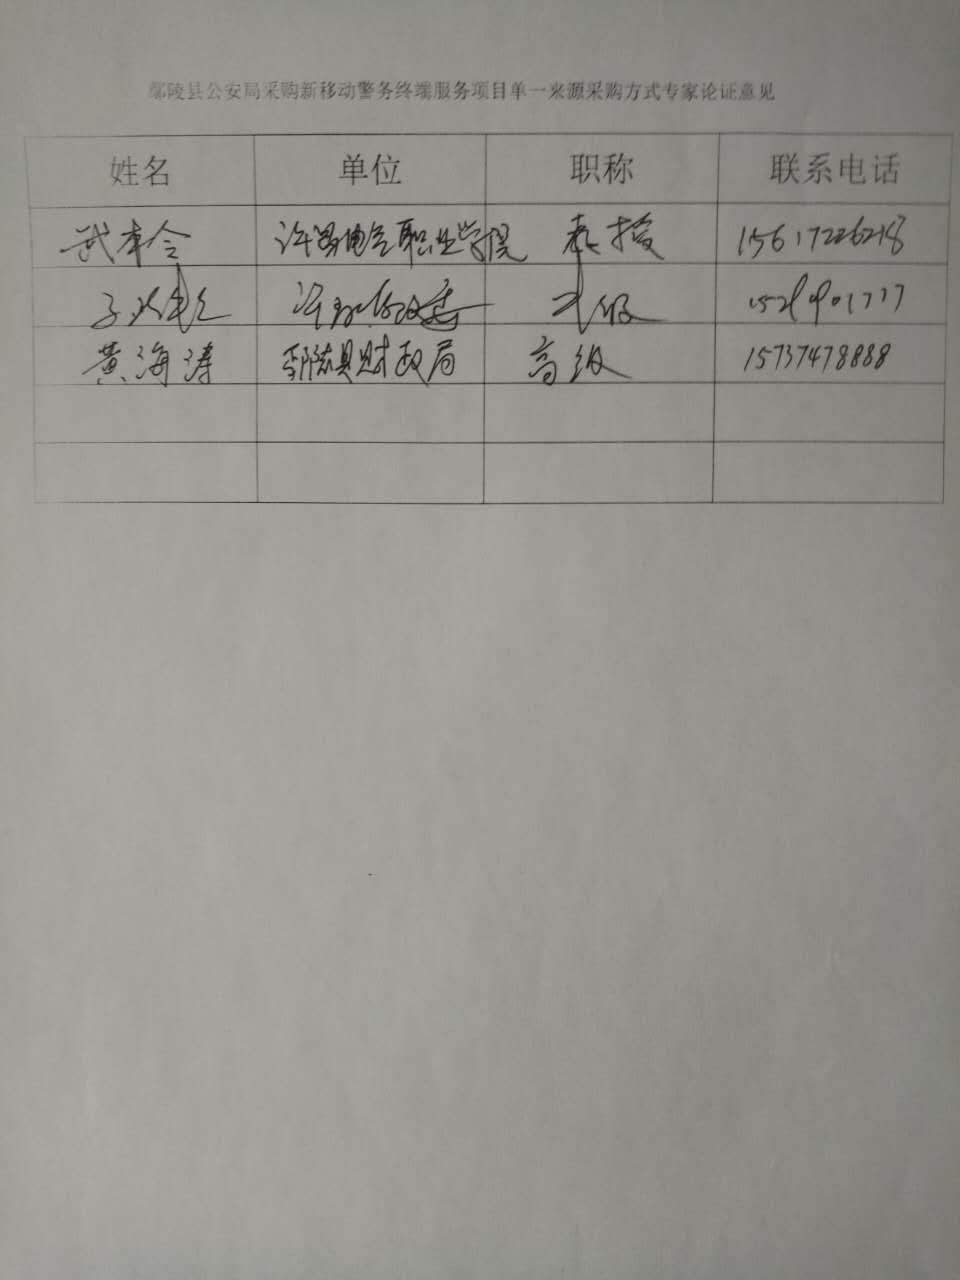 鄢陵县公安局采购新移动警务终端服务项目单一来源采购方式专家论证意见
姓名 单位 职称 联系电话
武奉令 许昌电气职业学院 教授 15617226218
高级
黄海涛 鄢陵县财政局 高级 15737478888